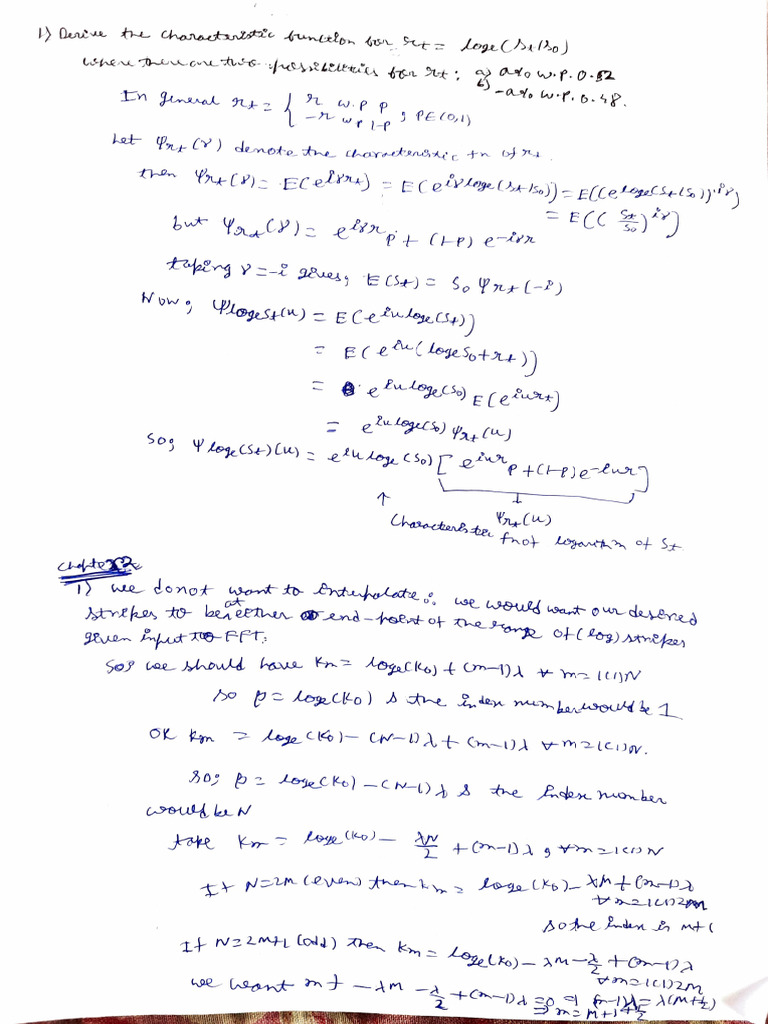 1) Derive the characteristic function for rt = loge(St/S0)
where there are two possibilities for rt: a) a% w.p. 0.52
b) -a% w.p. 0.48.
In general rt = { r w.p p
-r w.p 1-p ; p∈(0,1)
Let ψrt(γ) denote the characteristic fn of rt.
then ψrt(γ) = E(e^{iγrt}) = E(e^{iγloge(St/S0)}) = E((e^{loge(St/S0)})^{iγ})
= E((St/S0)^{iγ})
but ψrt(γ) = e^{iγr}p + (1-p) e^{-iγr}
taking γ = -i gives; E(St) = S0 ψrt(-i)
Now; ψlogeSt(u) = E(e^{iu loge(St)})
= E(e^{iu(logeS0+rt)})
= e^{iu loge(S0)} E(e^{iurt})
= e^{iu loge(S0)} ψrt(u)
So; ψloge(St)(u) = e^{iu loge(S0)} [e^{iur}p + (1-p)e^{-iur}]
↑ ψrt(u)
Characteristic fn of logarithm of St
Chapter 2:
1) we do not want to interpolate ∴ we would want our desired
strikes to be at either end-point of the range of (log) strikes
given input to FFT.
So; we should have Km = loge(K0) + (m-1)λ ∀ m=1(1)N
so β = loge(K0) & the index number would be 1
OR Km = loge(K0) - (N-1)λ + (m-1)λ ∀ m=1(1)N.
so; β = loge(K0) - (N-1)λ & the index number
would be N
take Km = loge(K0) - λN/2 + (m-1)λ, ∀ m=1(1)N
If N=2M (even) then km = loge(K0) - λM + (m-1)λ
∀ m=1(1)2M
so the index is M+1
If N=2M+1 (odd) then Km = loge(K0) - λM - λ/2 + (m-1)λ
∀ m=1(1)2M
we want m ∋ -λM - λ/2 + (m-1)λ = 0 ⇒ (m-1)λ = λ(M+1/2)
⇒ m = M+1+1/2